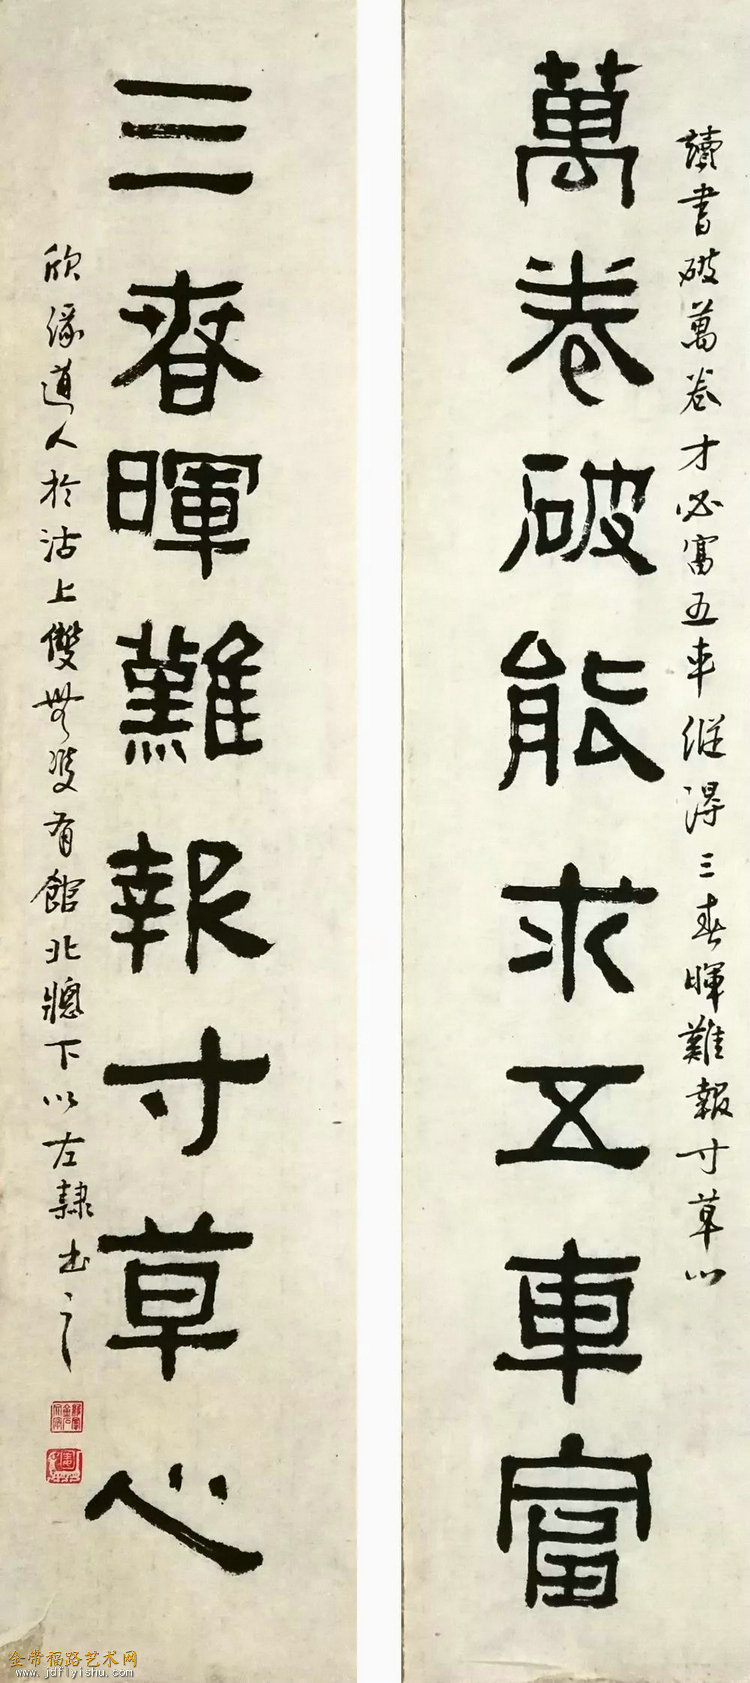 讀書破萬卷才必富五車縱得三春暉難報寸草心
萬卷破能求五車富
三春暉難報寸草心
欣緣道人於沽上雙無雙有館北窗下以左隸書之
金带福路艺术网
www.jdflyishu.com